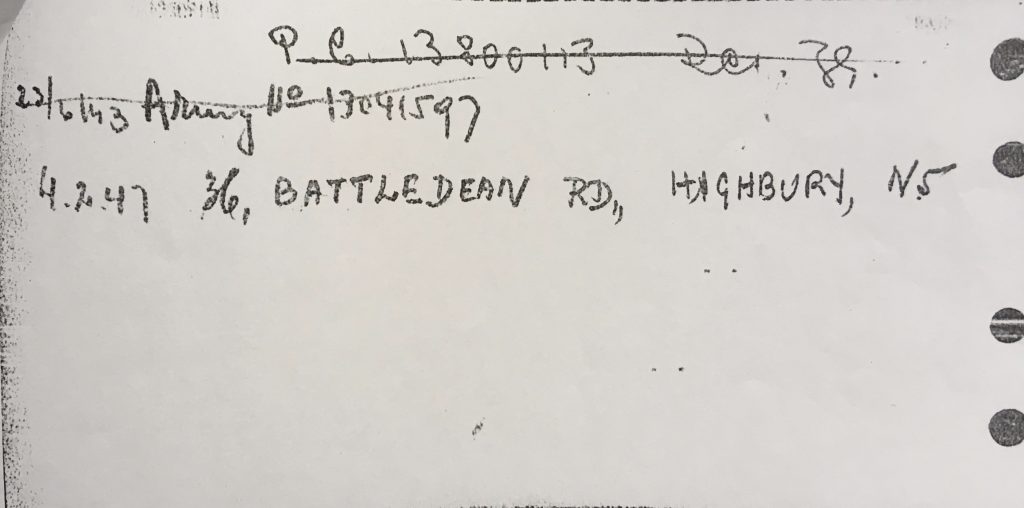 P.C. 13800113 Dar. 38.
22/6/43 Army No 13041597
4.2.47 36, BATTLEDEAN RD, HIGHBURY, N5